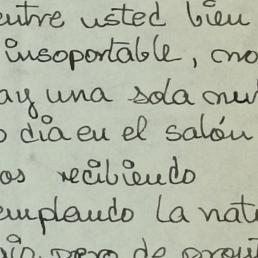 entre usted bien
insoportable, no
ay una sola nu
o dia en el salón
os recibiendo
emplando la nat
pero de pront